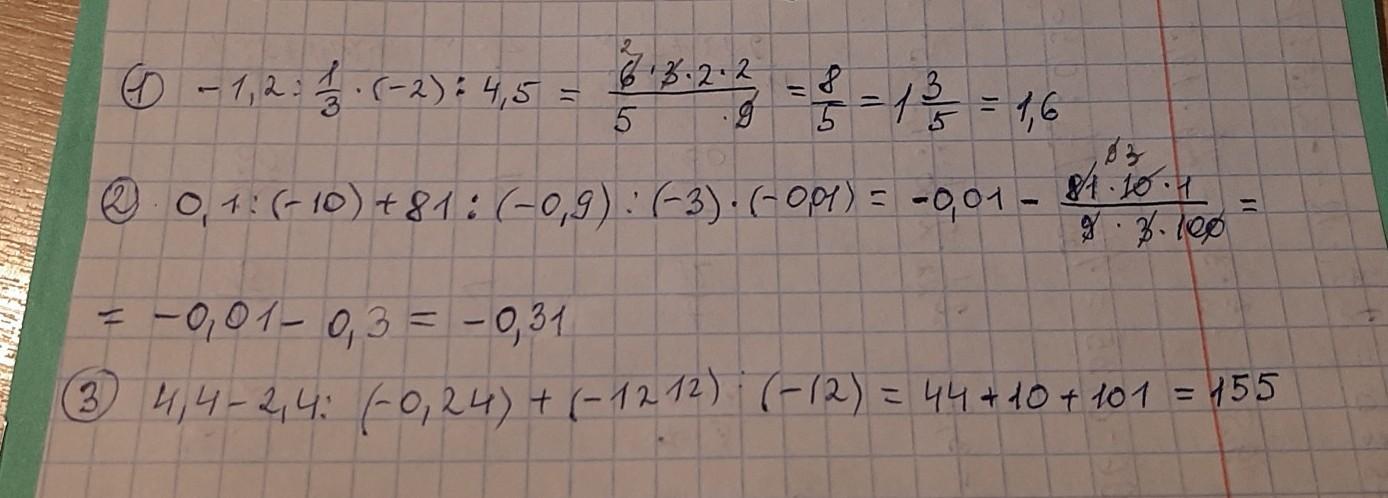 ① -1,2 : 1/3 · (-2) : 4,5 = (6̶² · 3̶ · 2 · 2)/(5 · 9̶) = 8/5 = 1 3/5 = 1,6
② 0,1 : (-10) + 81 : (-0,9) : (-3) · (-0,01) = -0,01 - (8̶1̶ · 1̶0̶ · 1)/(9̶ · 3̶ · 100̶) =
= -0,01 - 0,3 = -0,31
③ 4,4 - 2,4 : (-0,24) + (-1212) : (-12) = 44 + 10 + 101 = 155